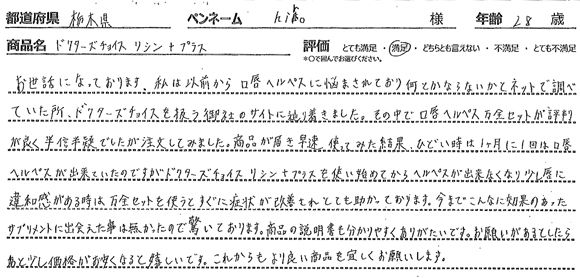 都道府県 栃木県 ペンネーム hiro. 様 年齢 28 歳
商品名 ドクターズチョイス リシン+プラス 評価 とても満足・満足・どちらとも言えない・不満足・とても不満足
*○で囲んでお選びください。
お世話になっております。私は以前から口唇ヘルペスに悩まされており何とかならないかとネットで調べ
ていた所、ドクターズチョイスを扱う御社のサイトに辿り着きました。その中で口唇ヘルペス万全セットが評判
が良く半信半疑でしたが注文してみました。商品が届き早速、使ってみた結果、ひどい時は1ヶ月に1回は口唇
ヘルペスが出来ていたのですがドクターズチョイス リシン+プラスを使い始めてからヘルペスが出来なくなり少し唇に
違和感がある時は万全セットを使うとすぐに症状が改善されとても助かっております。今までこんなに効果のあった
サプリメントに出会えた事は無かったので驚いております。商品の説明書も分かりやすくありがたいです。お願いがあるとしたら
あと少し価格がお安くなると嬉しいです。これからもより良い商品を宜しくお願いします。